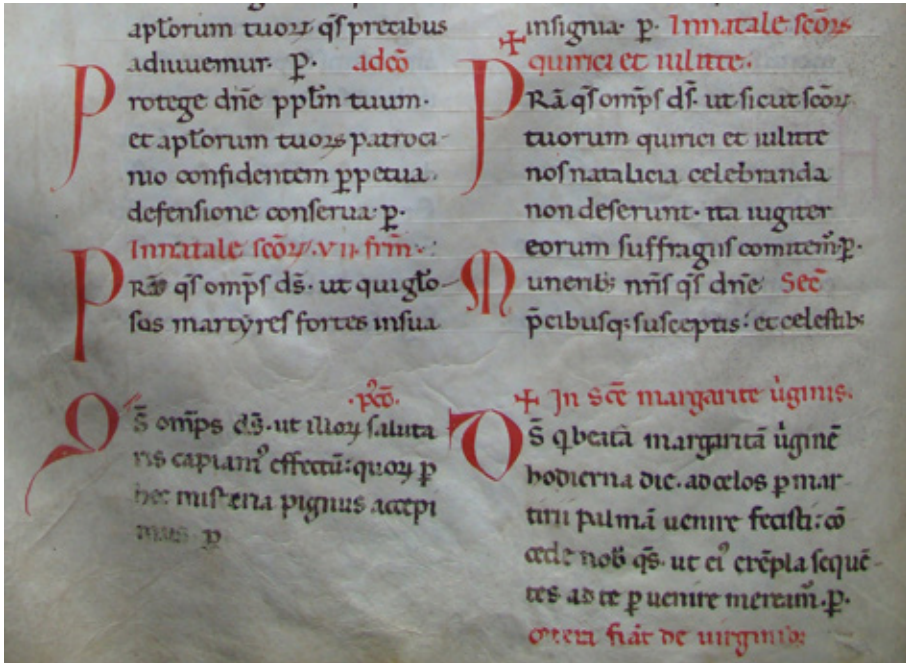 apłorum tuoꝝ qs̄ precibus
adiuuemur. p̄. adcō
Protege dn̄e ppłm tuum.
et apłorum tuoꝝ patroci-
nio confidentem ꝑpetua.
defensione conserua. p̄.
Innatale scōꝝ. vii. frm̄.
PRā qs̄ omp̄s ds̄. ut qui glo-
sos martyres fortes insua
p̕cō.
Qs̄ omp̄s ds̄. ut illoꝝ saluta
ris capiam᾽ effectū: quoꝝ ꝑ
hec misteria pignus accepi
mus p̄
insignia. p̄. Innatale scōꝝ
+ quirici et iulitte.
PRā qs̄ omp̄s ds̄. ut sicut scōꝝ
tuorum quirici et iulitte
nos natalicia celebranda
non deserunt. ita iugiter
eorum suffragiis comitem᾽. p̄.
Munerib; nr̄is qs̄ dn̄e Sec̄
p̄cibusq; susceptis: et celestib;
+ In Sc̄e margarite u̇ginis.
Ds̄ q beatā margaritā u̇ginē
hodierna die. ad celos ꝑ mar-
tirii palmā uenire fecisti: cō
cede nob̄ qs̄. ut ei᾽ exēpla sequē-
tes ad te ꝑuenire meream᾽. p̄.
Cetera fiāt de uirginib;